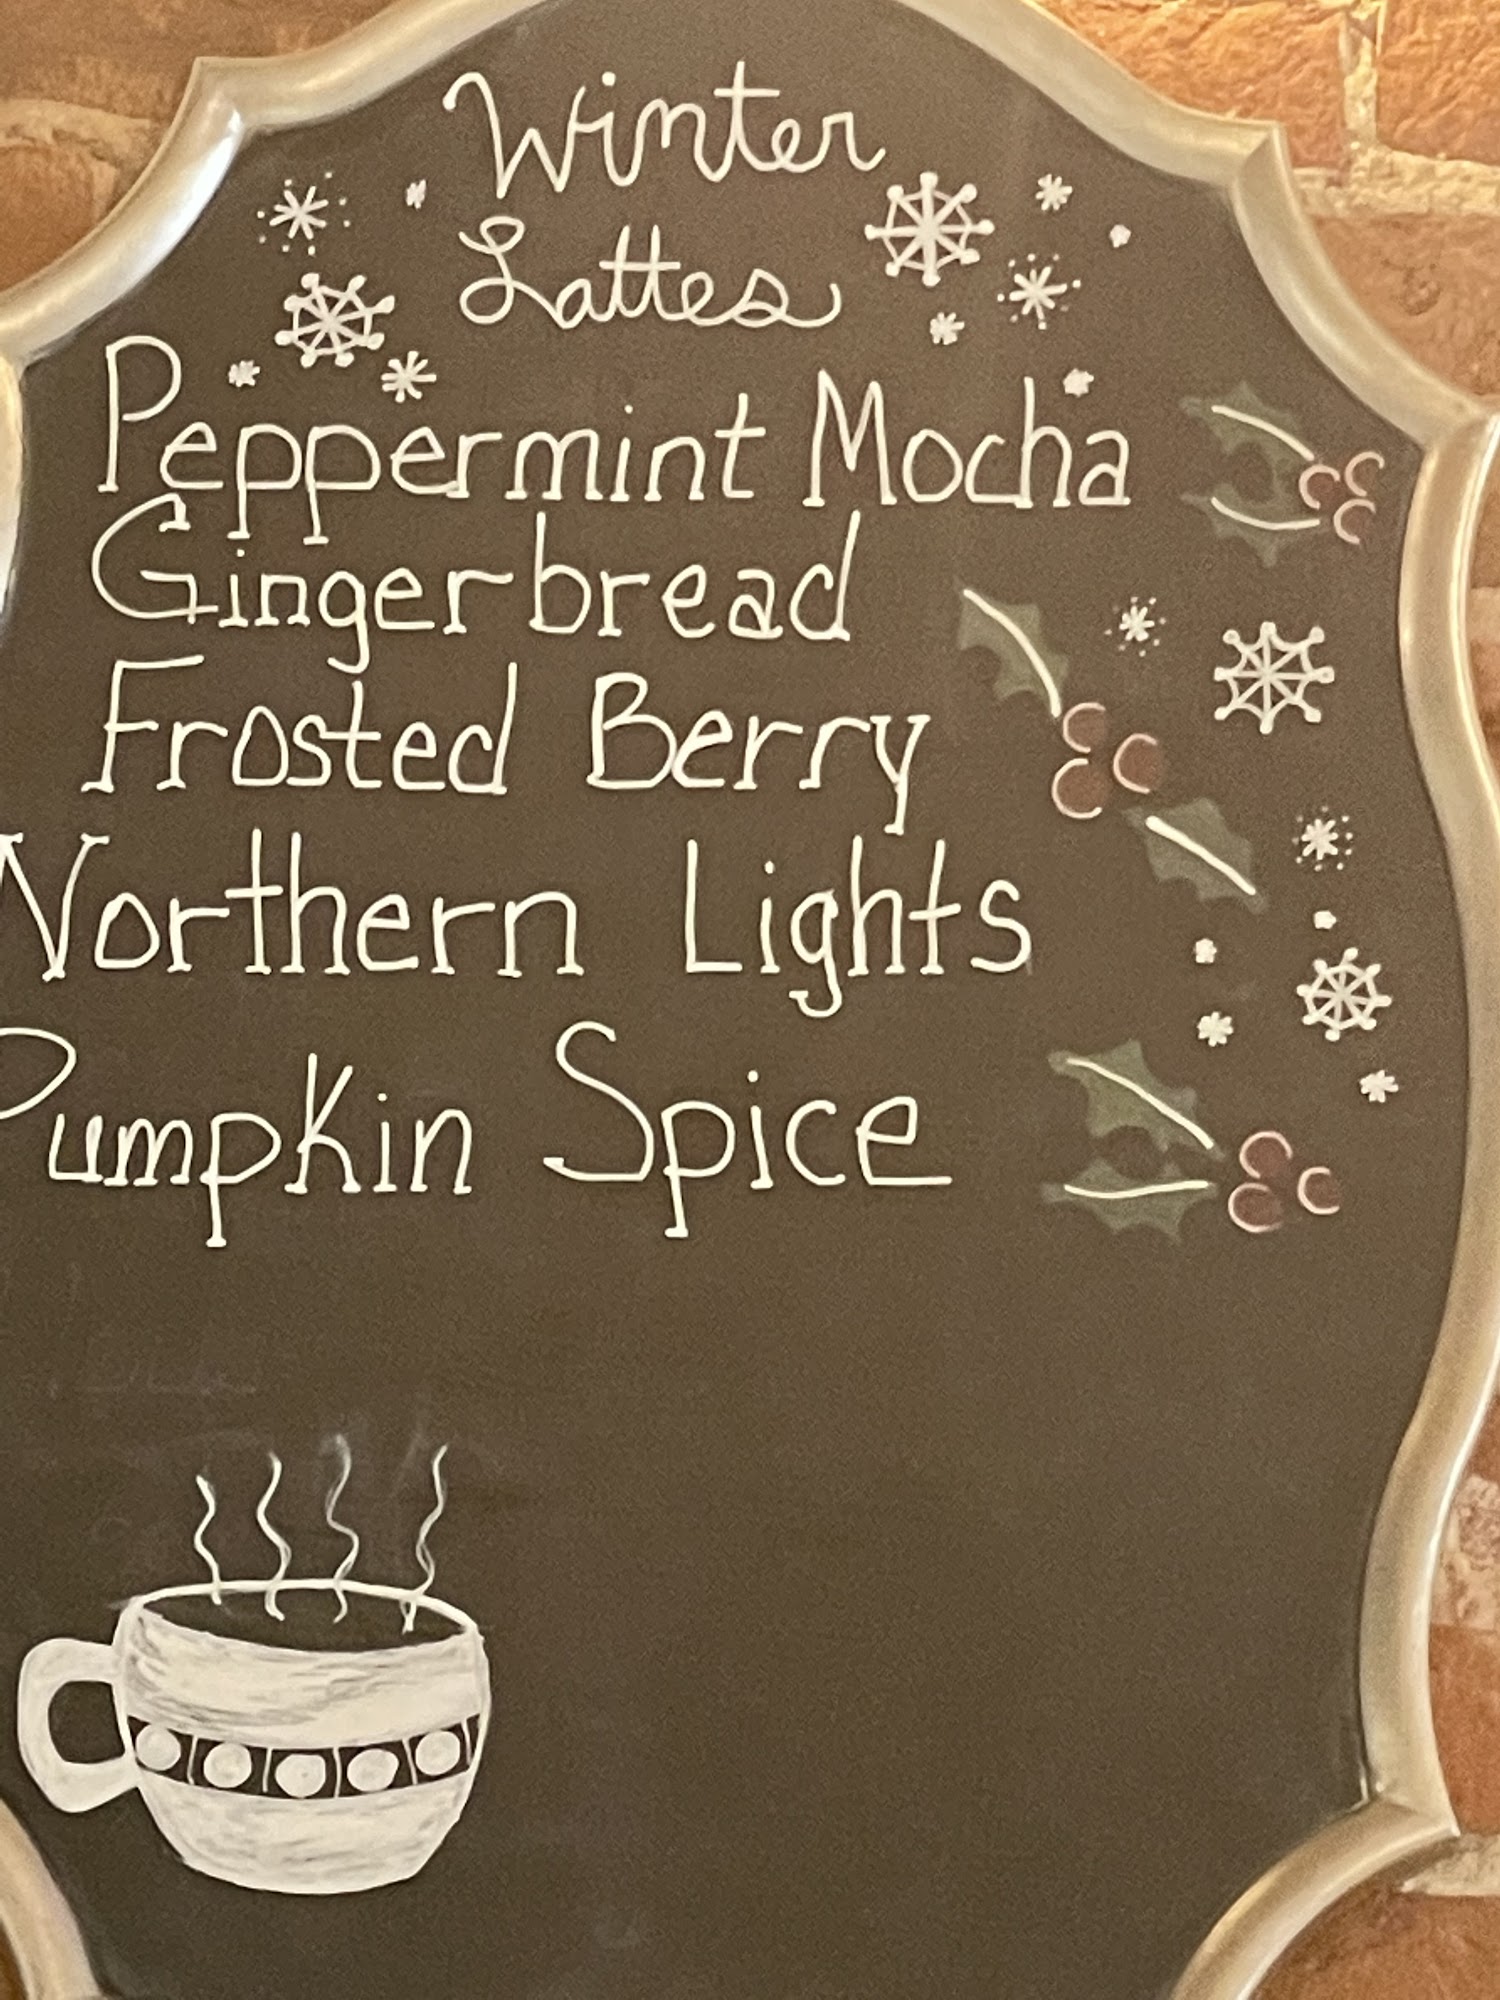 Winter
Lattes
Peppermint Mocha
Gingerbread
Frosted Berry
Northern Lights
Pumpkin Spice